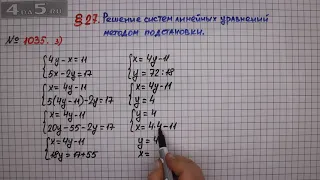 4on5.ru
§27. Решение систем линейных уравнений методом подстановки.
№ 1035. 3)
{4y-x=11
{5x-2y=17
{x=4y-11
{5(4y-11)-2y=17
{x=4y-11
{20y-55-2y=17
{x=4y-11
{18y=17+55
{x=4y-11
{y=72:18
{x=4y-11
{y=4
{y=4
{x=4·4-11
y=4
x=